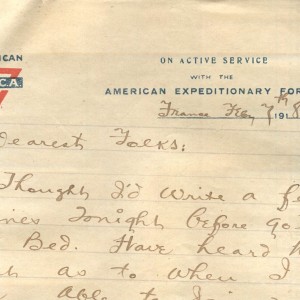 ICAN
ON ACTIVE SERVICE
C.A.
WITH THE
AMERICAN EXPEDITIONARY FOR
France Feb 7th 1918
earest Folks:
Thought I'd write a fe
ines Tonight before go
Bed. Have heard
as to when I
able to